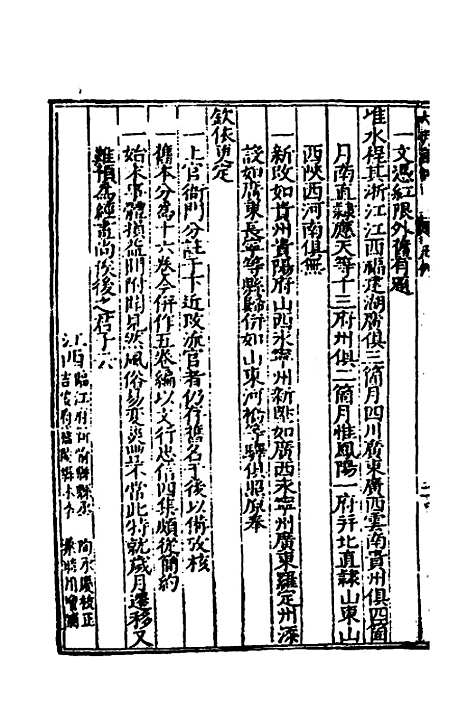 一文憑紅限外舊有題
准水程其浙江江西福建湖廣俱三箇月四川廣東廣西雲南貴州俱四箇
月南直隸應天等十三府州俱二箇月惟鳳陽一府并北直隸山東山
西陝西河南俱無
一新改如貴州貴陽府山西永寧州新陞如廣西永寧州廣東羅定州添
設如廣東長寧等縣歸併如山東河橋等驛俱照原奉
欽依更定
一上官衙門分註于下近改流官者仍存舊名于後以備攷核
一舊本分為十六卷今併作五卷編以文行忠信四集頗從簡約
一始末事體損益間附見然風俗易變災不常此特就歲月遷移又
難預為經畫尚俟後之君子云
江西臨江府新喻縣縣丞 陶承慶校正
江西吉安府廬陵縣末士 葉時用增補